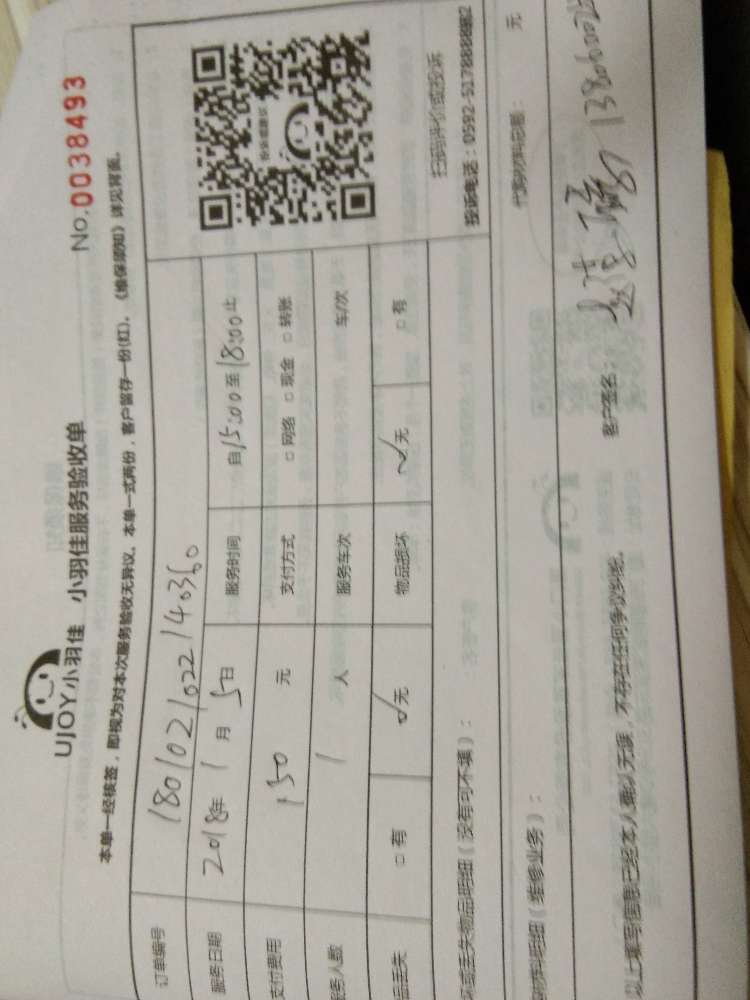 UJOY小羽佳 小羽佳服务验收单
No.0038493
本单一经核签，即视为对本次服务验收无异议。本单一式两份，客户留存一份(红)。《维保须知》详见背面。
订单编号 1801021022140360
服务日期 2018年 1月 5日 服务时间 自15:00至18:00止
支付费用 150 元 支付方式 □网络 □现金 □转账
服务人数 1 人 服务车次 车/次
品丢失 □有 ✓无 物品损坏 ✓无 □有
投诉或建议
扫码评价或投诉
投诉电话：0592-5178888转2
坏或丢失物品明细（没有可不填）：
材料明细（维修业务）： 代购材料总额： 元
以上填写信息已经本人确认无误，不存在任何争议纠纷。 客户签名：